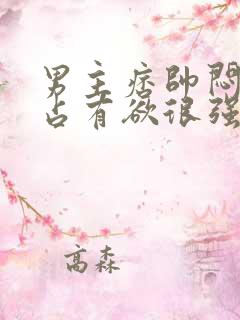 男主痞帅闷
占有欲很强
高森